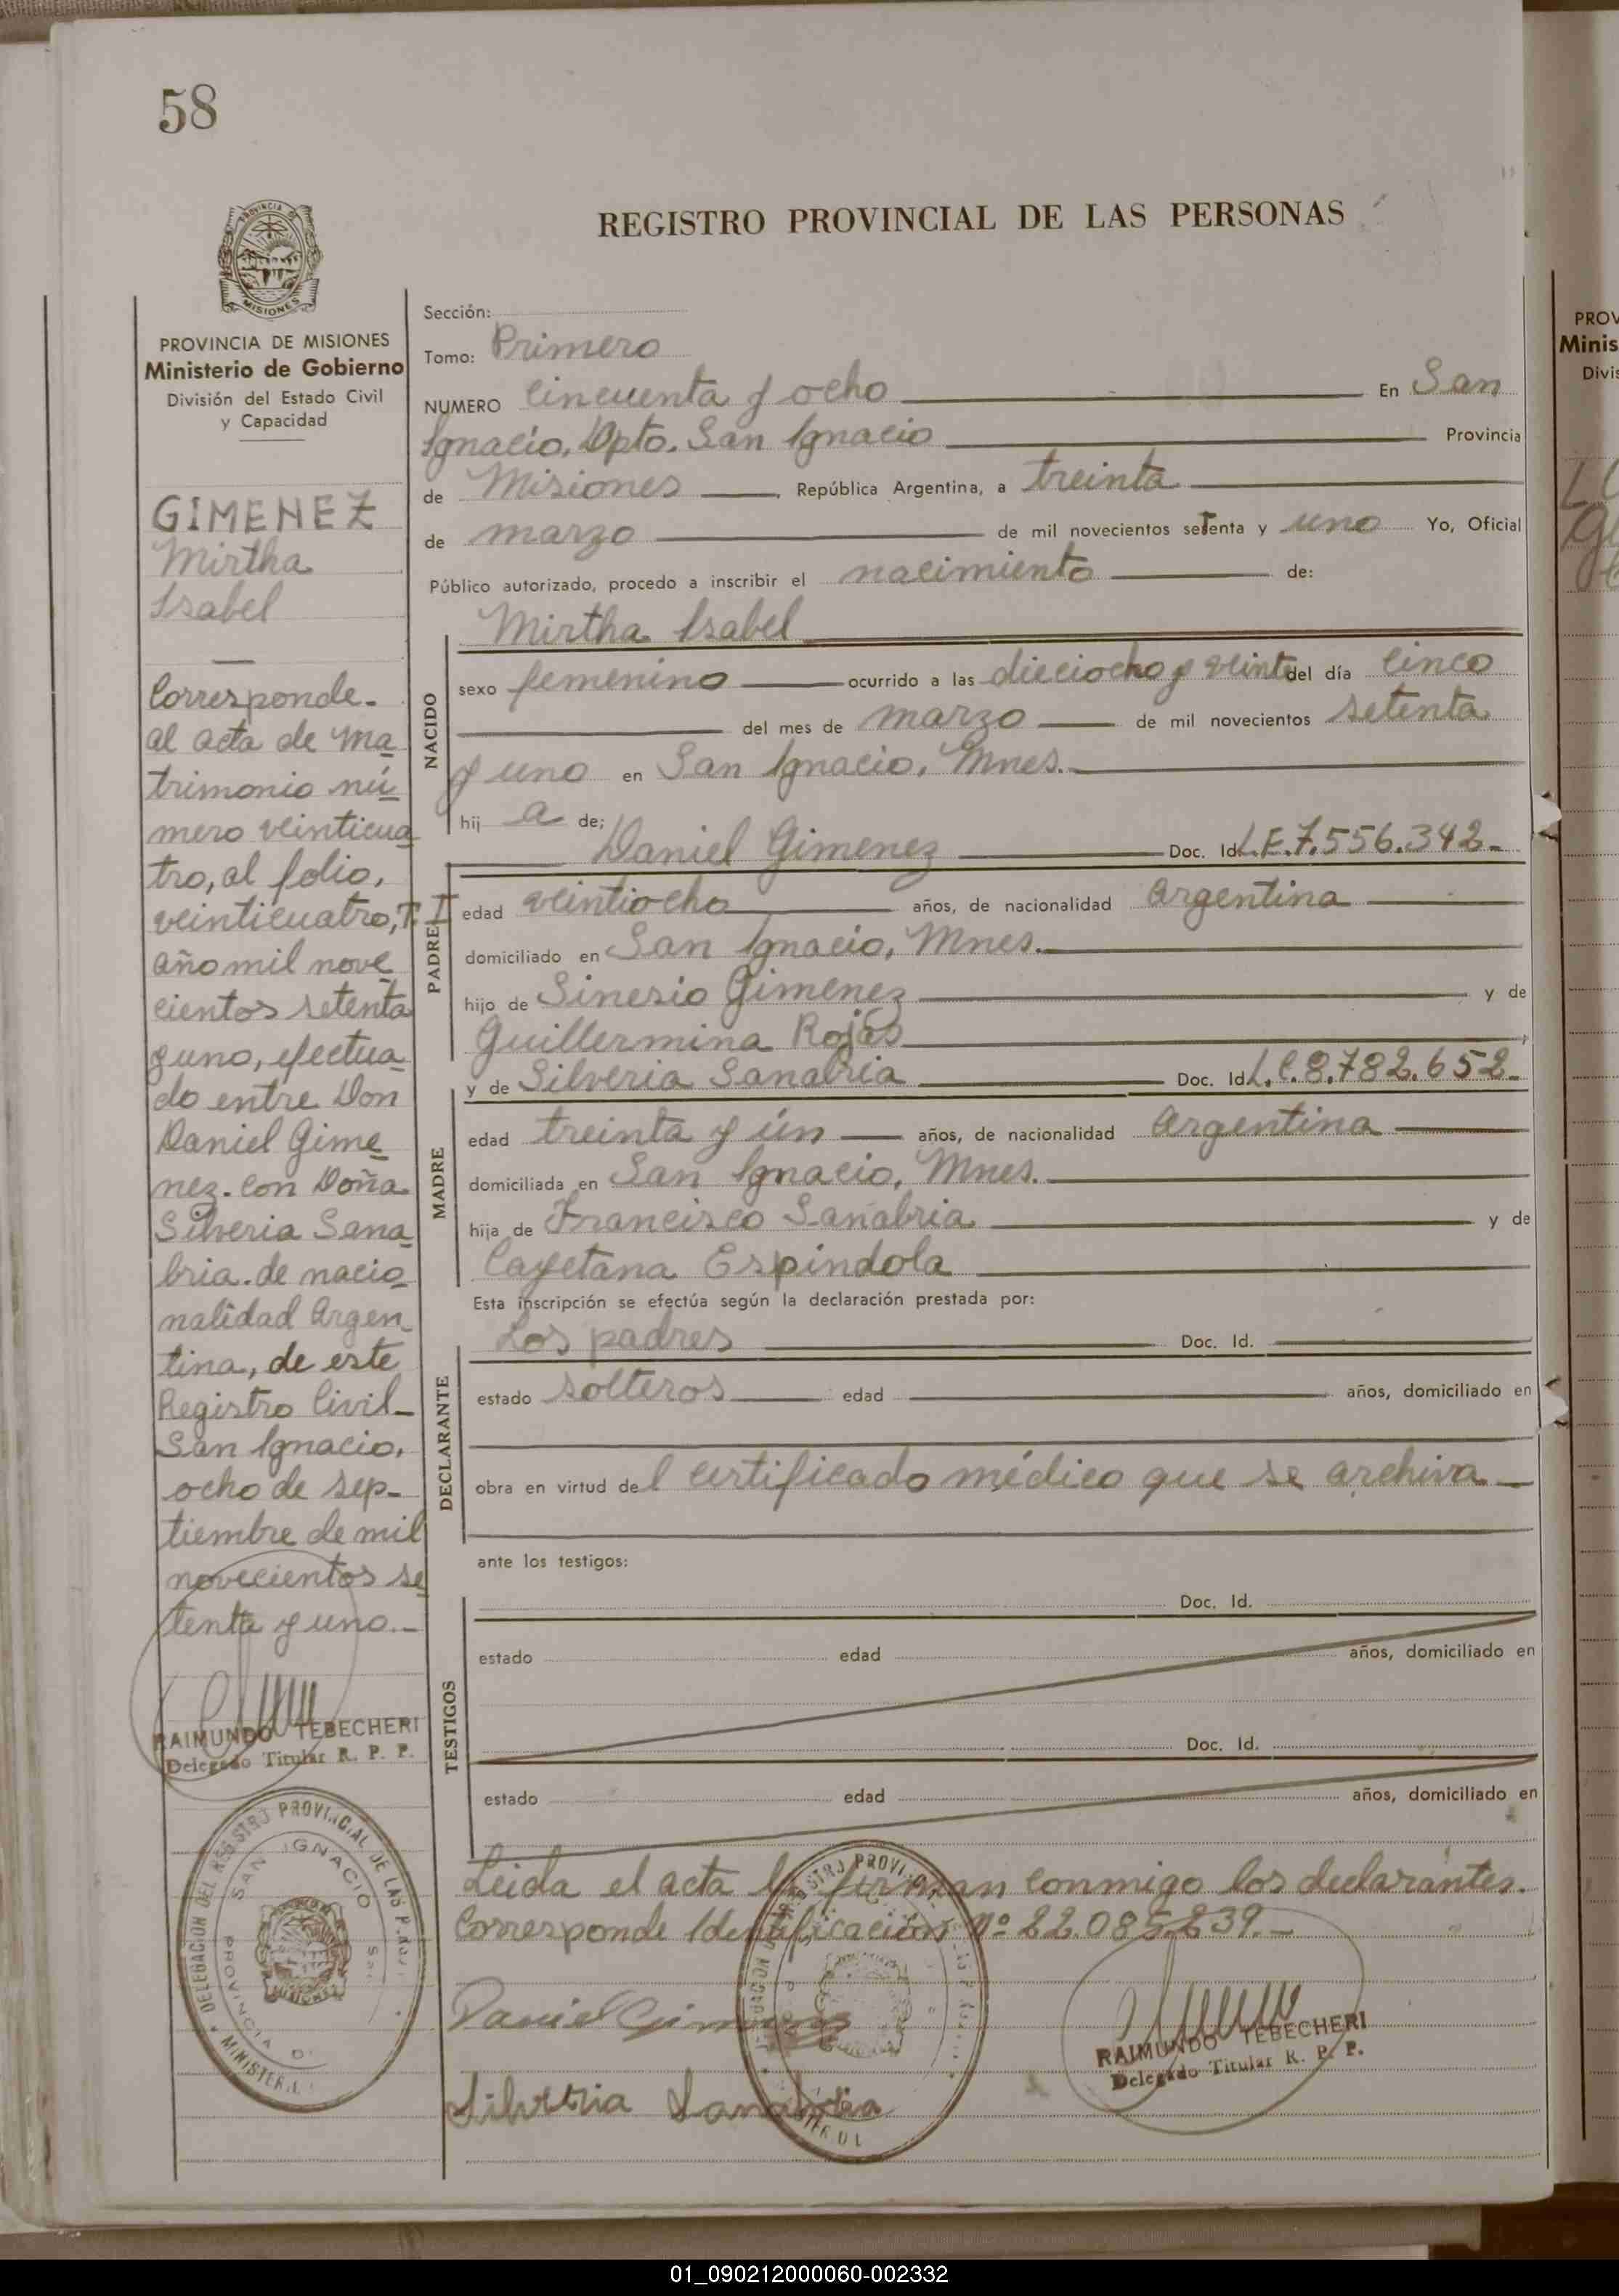 58
REGISTRO PROVINCIAL DE LAS PERSONAS
PROVINCIA DE
MISIONES
PROVINCIA DE MISIONES
Ministerio de Gobierno
División del Estado Civil
y Capacidad
GIMENEZ
Mirtha
Isabel
Corresponde.
al acta de ma
trimonio nú
mero veinticua
tro, al folio,
veinticuatro, T. I
año mil nove
cientos setenta
y uno, efectua
do entre Don
Daniel Gime
nez. con Doña
Silveria Sana
bria. de nacio
nalidad Argen
tina, de este
Registro Civil-
San Ignacio,
ocho de sep-
tiembre de mil
novecientos se
tenta y uno.-
RAIMUNDO TEBECHERI
Delegado Titular R. P. P.
DELEGACION DEL REGISTRO PROVINCIAL DE LAS
SAN IGNACIO
PROVINCIA
Sección:
Tomo: Primero
NUMERO Cincuenta y ocho En San
Ignacio, Dpto. San Ignacio Provincia
de Misiones, República Argentina, a treinta
de marzo de mil novecientos setenta y uno Yo, Oficial
Público autorizado, procedo a inscribir el nacimiento de:
NACIDO
Mirtha Isabel
sexo femenino ocurrido a las dieciocho y veinte del día cinco
del mes de marzo de mil novecientos setenta
y uno en San Ignacio, Mnes.
hij a de;
PADRE
Daniel Gimenez Doc. Id. L.E.7.556.342.-
edad veintiocho años, de nacionalidad Argentina
domiciliado en San Ignacio, Mnes.
hijo de Sinesio Gimenez y de
Guillermina Rojas
MADRE
y de Silveria Sanabria Doc. Id. L.C.8.782.652.-
edad treinta y ún años, de nacionalidad Argentina
domiciliada en San Ignacio, Mnes.
hija de Francisco Sanabria y de
Cayetana Espindola
Esta inscripción se efectúa según la declaración prestada por:
DECLARANTE
Los padres Doc. Id.
estado solteros edad años, domiciliado en
obra en virtud del certificado médico que se archiva
ante los testigos:
TESTIGOS
Doc. Id.
estado edad años, domiciliado en
Doc. Id.
estado edad años, domiciliado en
Leida el acta la firman conmigo los declarantes.
Corresponde Identificación Nº 22.085.239.-
Daniel Gimenez
Silveria Sanabria
RAIMUNDO TEBECHERI
Delegado Titular R. P. P.
PROV
Minis
Divis
01_090212000060-002332